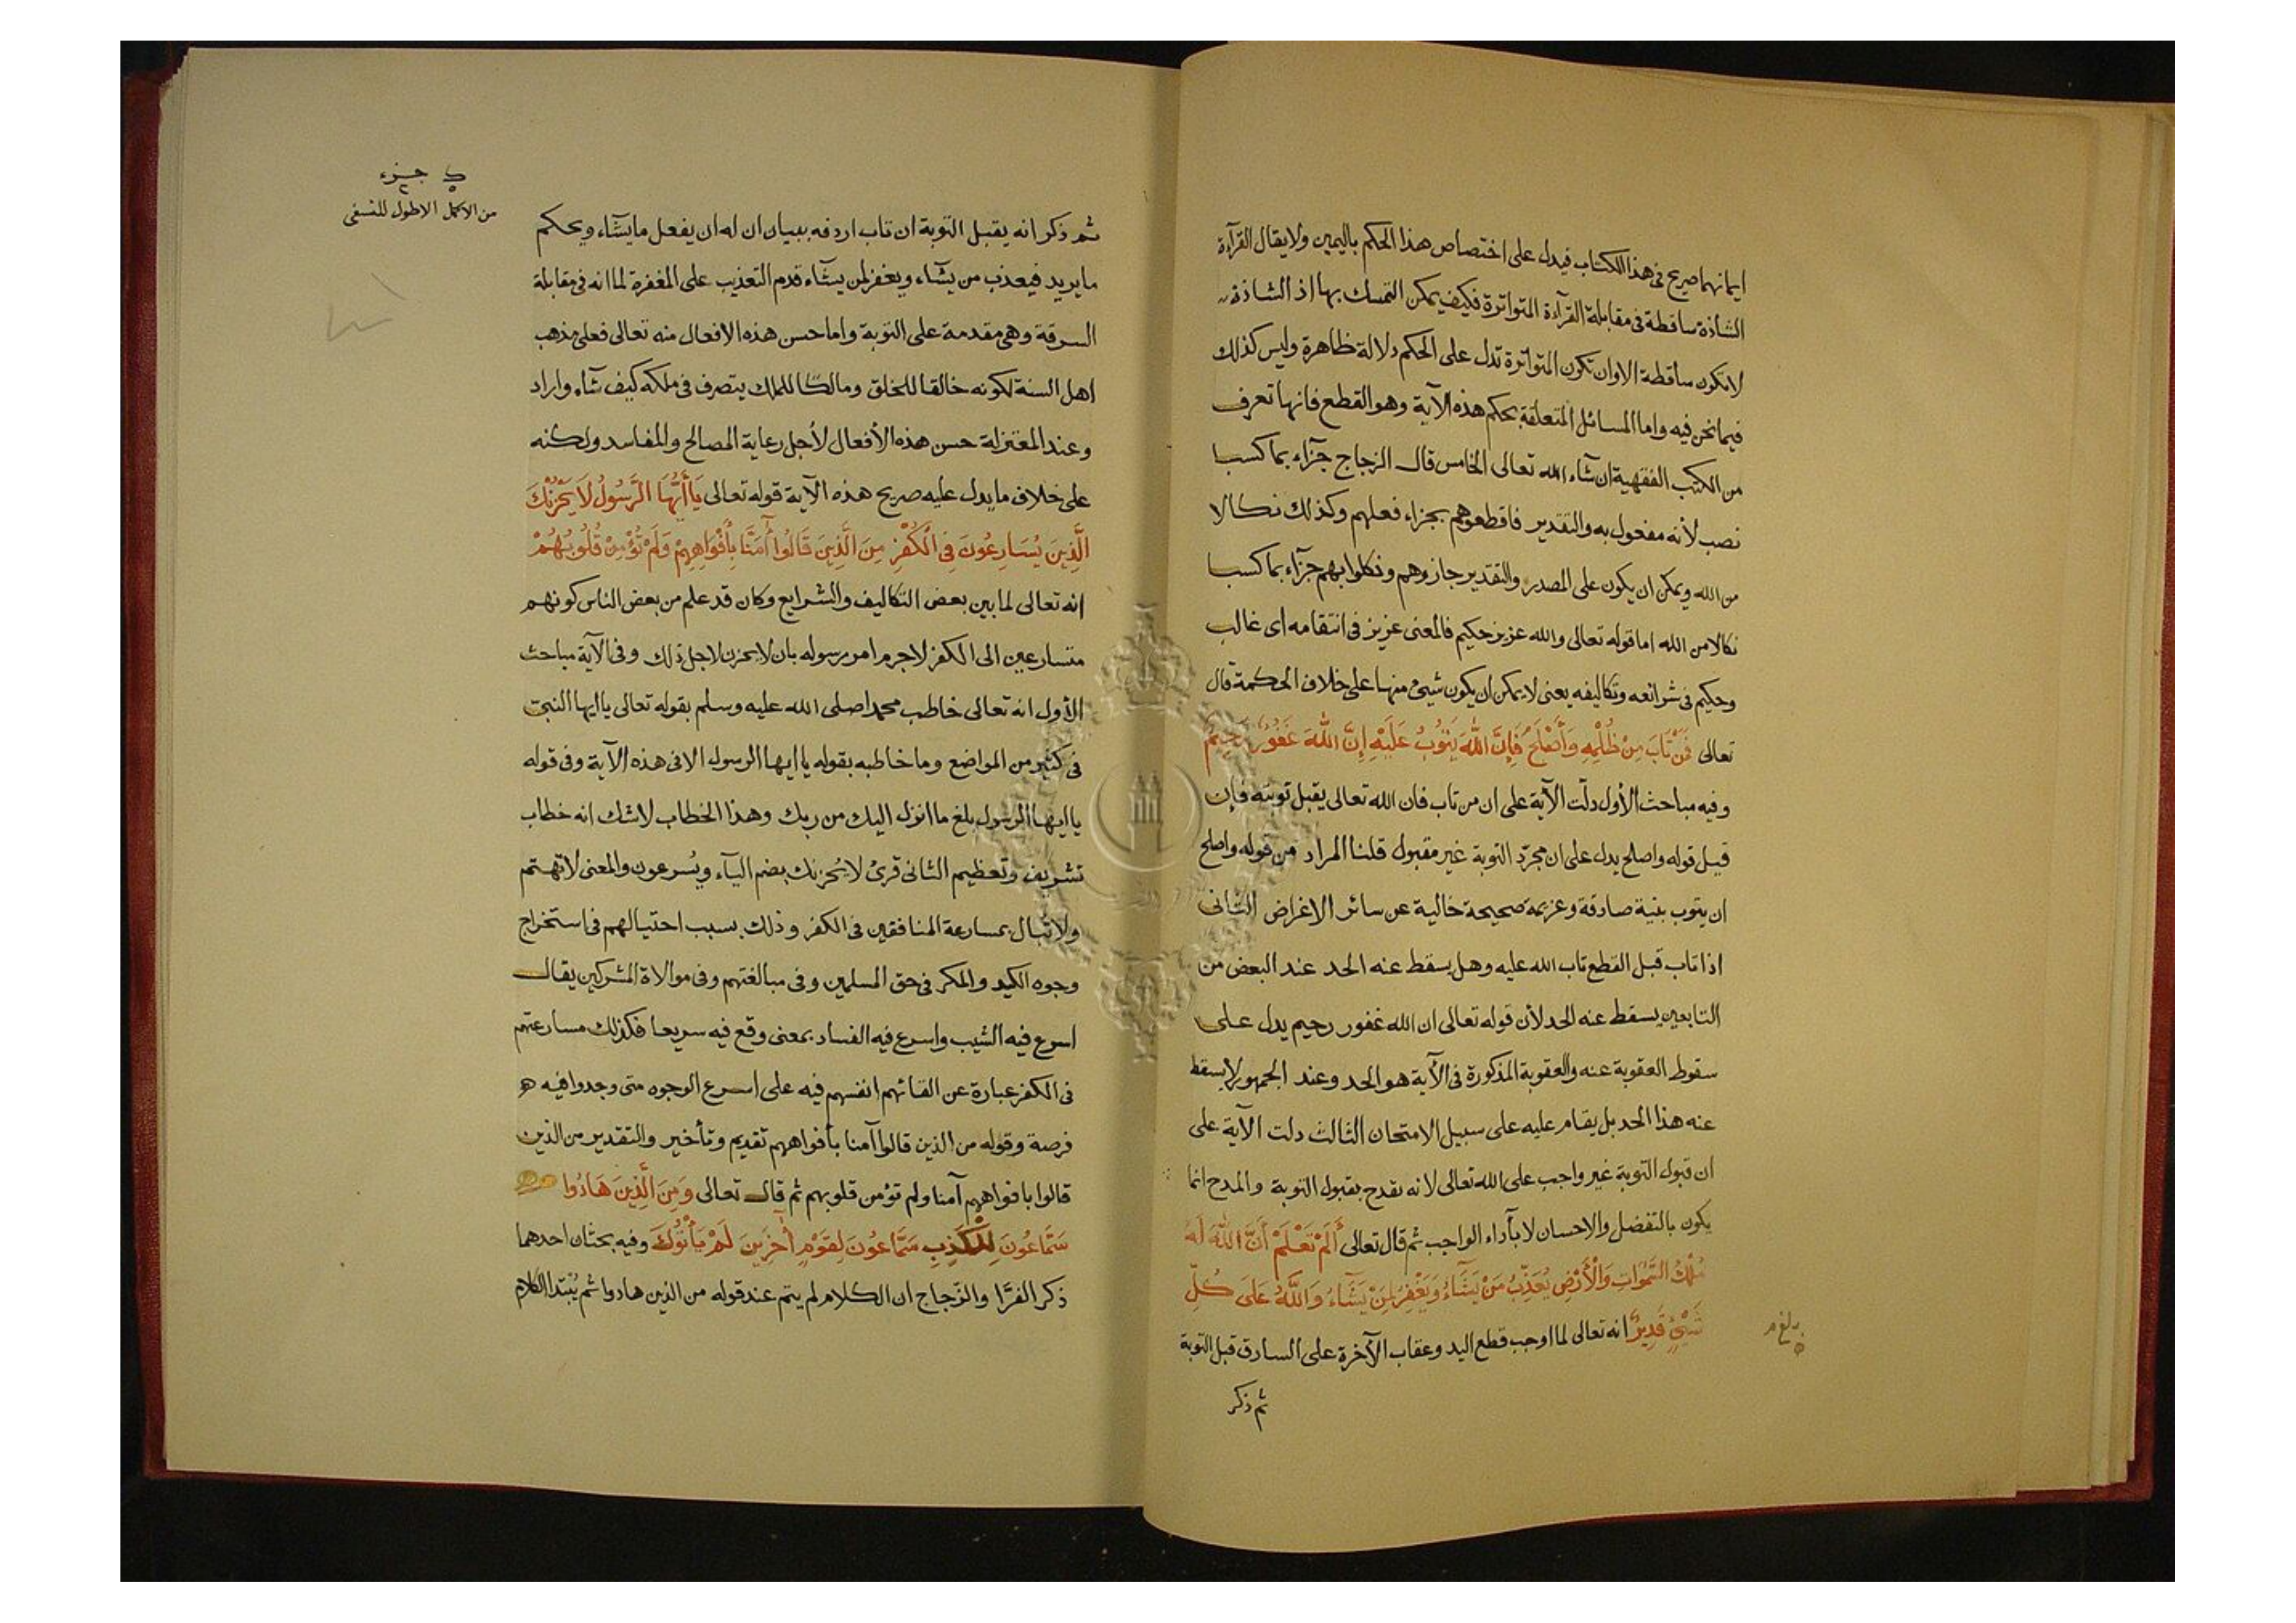 ايمانهما صريح فى هذا الكتاب فيدل على اختصاص هذا الحكم باليمين ولا يقال القرآءة
الشاذة ساقطة فى مقابلة القرآءة المتواترة فكيف يمكن التمسك بها اذ الشاذة
لا تكون ساقطة الا وان تكون المتواترة تدل على الحكم دلالة ظاهرة وليس كذلك
فيما نحن فيه واما المسائل المتعلقة بحكم هذه الآية وهو القطع فانها تعرف
من الكتب الفقهية ان شآء الله تعالى الخامس قال الزجاج جزآء بما كسبا
نصب لأنه مفعول به والتقدير فاقطعوهم بجزاء فعلهم وكذلك نكالا
من الله ويمكن ان يكون على المصدر والتقدير جازوهم ونكلوا بهم جزآء بما كسبا
نكالا من الله اما قوله تعالى والله عزيز حكيم فالمعنى عزيز فى انتقامه اى غالب
وحكيم فى شرائعه وتكاليفه يعنى لا يمكن ان يكون شيئ منها على خلاف الحكمة قال
تعالى فَمَنْ تَابَ مِنْ ظُلْمِهِ وَأَصْلَحَ فَإِنَّ اللَّهَ يَتُوبُ عَلَيْهِ إِنَّ اللَّهَ غَفُورٌ رَحِيمٌ
وفيه مباحث الأول دلّت الآية على ان من تاب فان الله تعالى يقبل توبته فإن
قيل قوله واصلح يدل على ان مجرّد التوبة غير مقبول قلنا المراد من قوله واصلح
ان يتوب بنية صادقة وعزيمة صحيحة خالية عن سائر الاغراض الثانى
اذا تاب قبل القطع تاب الله عليه وهل يسقط عنه الحد عند البعض من
التابعين يسقط عنه الحد لأن قوله تعالى ان الله غفور رحيم يدل على
سقوط العقوبة عنه والعقوبة المذكورة فى الآية هو الحد وعند الجمهور لا يسقط
عنه هذا الحد بل يقام عليه على سبيل الامتحان الثالث دلت الآية على
ان قبول التوبة غير واجب على الله تعالى لانه تمدح بقبول التوبة والمدح انما
يكون بالتفضل والاحسان لا بأداء الواجب ثم قال تعالى أَلَمْ تَعْلَمْ أَنَّ اللَّهَ لَهُ
مُلْكُ السَّمَوَاتِ وَالْأَرْضِ يُعَذِّبُ مَنْ يَشَاءُ وَيَغْفِرُ لِمَنْ يَشَآءُ وَاللَّهُ عَلَى كُلِّ
شَيْئٍ قَدِيرٌ انه تعالى لما اوجب قطع اليد وعقاب الآخرة على السارق قبل التوبة
ثم ذكر
بلغ م
جزء
من الاكمل الاطول للنسفى
ثم ذكر انه يقبل التوبة ان تاب اردفه ببيان ان له ان يفعل ما يشآء ويحكم
ما يريد فيعذب من يشآء ويغفر لمن يشآء قدم التعذيب على المغفرة لما انه فى مقابلة
السرقة وهى مقدمة على التوبة واما حسن هذه الافعال منه تعالى فعلى مذهب
اهل السنة لكونه خالقا للخلق ومالكا للملك يتصرف فى ملكه كيف شآء واراد
وعند المعتزلة حسن هذه الأفعال لأجل رعاية المصالح والمفاسد ولكنه
على خلاف ما يدل عليه صريح هذه الآية قوله تعالى يَاأَيُّهَا الرَّسُولُ لَا يَحْزُنْكَ
الَّذِينَ يُسَارِعُونَ فِى الْكُفْرِ مِنَ الَّذِينَ قَالُوا آمَنَّا بِأَفْوَاهِهِمْ وَلَمْ تُؤْمِنْ قُلُوبُهُمْ
انه تعالى لما بين بعض التكاليف والشرايع وكان قد علم من بعض الناس كونهم
متسارعين الى الكفر لاجرم امر رسوله بان لا يحزن لاجل ذلك وفى الآية مباحث
الأول انه تعالى خاطب محمدا صلى الله عليه وسلم بقوله تعالى يا ايها النبى
فى كثير من المواضع وما خاطبه بقوله يا ايها الرسول الا فى هذه الآية وفى قوله
يا ايها الرسول بلغ ما انزل اليك من ربك وهذا الخطاب لا شك انه خطاب
تشريف وتعظيم الثانى قرئ لا يُحزنك بضم اليآء ويُسرعون والمعنى لا تهتم
ولا تبال بمسارعة المنافقين فى الكفر وذلك بسبب احتيالهم فى استخراج
وجوه الكيد والمكر فى حق المسلمين وفى مبالغتهم وفى موالاة المشركين يقال
اسرع فيه الشيب واسرع فيه الفساد بمعنى وقع فيه سريعا فكذلك مسارعتهم
فى الكفر عبارة عن القائهم انفسهم فيه على اسرع الوجوه متى وجدوا فيه
فرصة وقوله من الذين قالوا آمنا بأفواههم تقديم وتأخير والتقدير من الذين
قالوا بافواههم آمنا ولم تؤمن قلوبهم ثم قال تعالى وَمِنَ الَّذِينَ هَادُوا
سَمَّاعُونَ لِلْكَذِبِ سَمَّاعُونَ لِقَوْمٍ آخَرِينَ لَمْ يَأْتُوكَ وفيه بحثان احدهما
ذكر الفرَّا والزّجاج ان الكلام لم يتم عند قوله من الذين هادوا ثم يُبْتدا الكلام